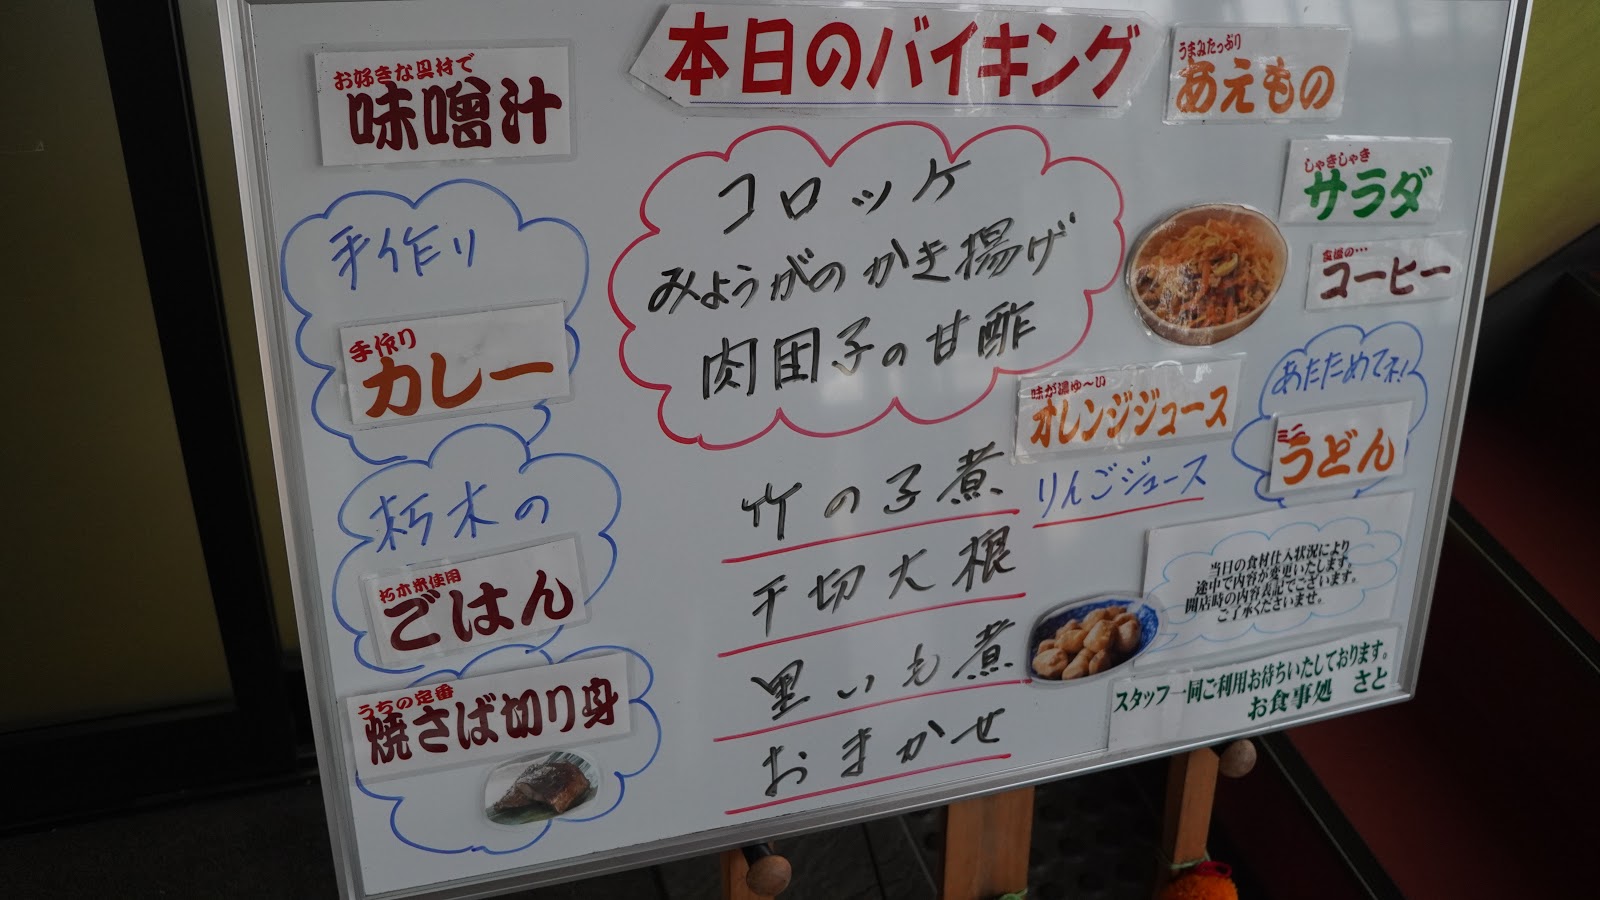 本日のバイキング
お好きな具材で
味噌汁
手作り
手作り
カレー
朽木の
朽木米使用
ごはん
うちの定番
焼さば切り身
コロッケ
みょうがのかき揚げ
肉団子の甘酢
竹の子煮
千切大根
里いも煮
おまかせ
うまみたっぷり
あえもの
しゃきしゃき
サラダ
食後の…
コーヒー
味が濃ゆ～い
オレンジジュース
りんごジュース
あたためてネ!
ミニ
うどん
当日の食材仕入状況により
途中で内容が変更いたします。
開店時の内容表記でございます。
ご了承くださいませ。
スタッフ一同ご利用お待ちいたしております。
お食事処 さと